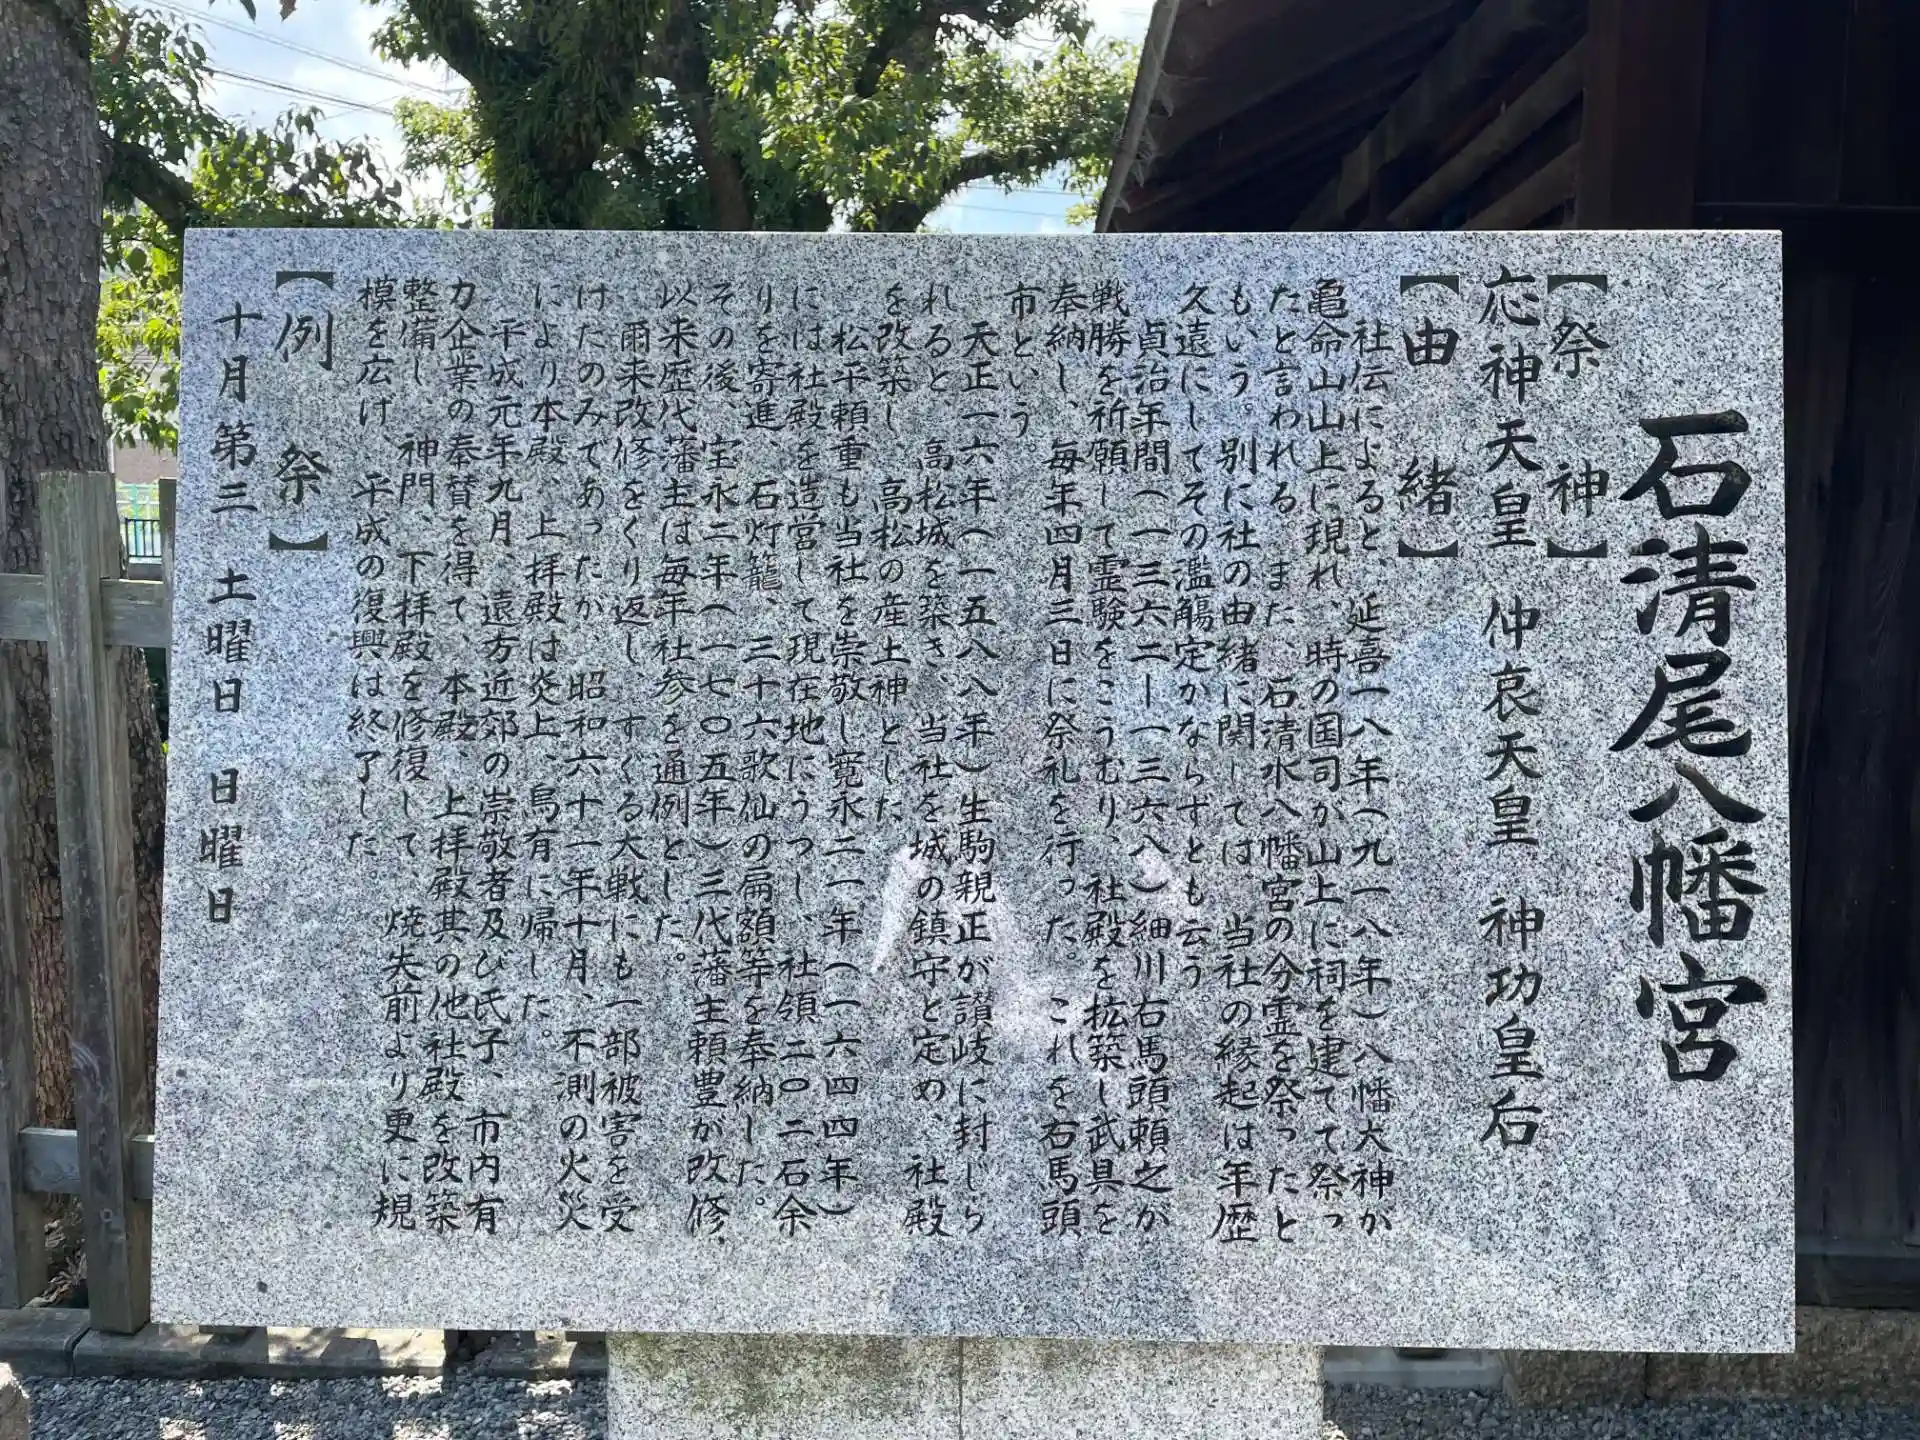 石清尾八幡宮
【祭　神】
応神天皇　仲哀天皇　神功皇后
【由　緒】
社伝によると、延喜一八年(九一八年)八幡大神が
亀命山山上に現れ、時の国司が山上に祠を建てて祭っ
たと言われる。また、石清水八幡宮の分霊を祭ったと
もいう。別に社の由緒に関しては、当社の縁起は年歴
久遠にしてその濫觴定かならずとも云う。
貞治年間(一三六二ー一三六八)細川右馬頭頼之が
戦勝を祈願して霊験をこうむり、社殿を拡築し武具を
奉納し、毎年四月三日に祭礼を行った。これを右馬頭
市という。
天正一六年(一五八八年)生駒親正が讃岐に封じら
れると、高松城を築き、当社を城の鎮守と定め、社殿
を改築し、高松の産土神とした
松平頼重も当社を崇敬し寛永二一年(一六四四年)
には社殿を造営して現在地にうつし、社領二〇二石余
りを寄進、石灯籠、三十六歌仙の扁額等を奉納した。
その後、宝永二年(一七〇五年)三代藩主頼豊が改修、
以来歴代藩主は毎年社参を通例とした。
爾来改修をくり返し、すぐる大戦にも一部被害を受
けたのみであったが、昭和六十一年十月、不測の火災
により本殿、上拝殿は炎上、烏有に帰した。
平成元年九月、遠方近郊の崇敬者及び氏子、市内有
力企業の奉賛を得て、本殿、上拝殿其の他社殿を改築
整備し、神門、下拝殿を修復して、焼失前より更に規
模を広げ、平成の復興は終了した。
【例　祭】
十月第三　土曜日　日曜日